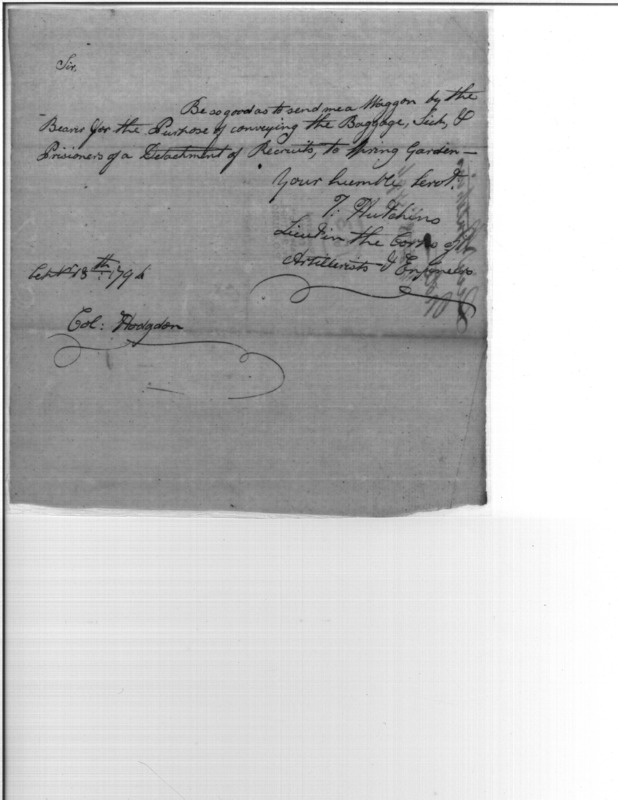 Sir,
Be so good as to send me a Waggon by the
Bearer for the Purpose of conveying the Baggage, Sick, &
Prisioners of a Detachment of Recruits, to Spring Garden—
Your humble Servt.
T. Hutchins
Lieut in the Corps of
Artillerists & Engineers
18th 1794
Col: Hodgdon